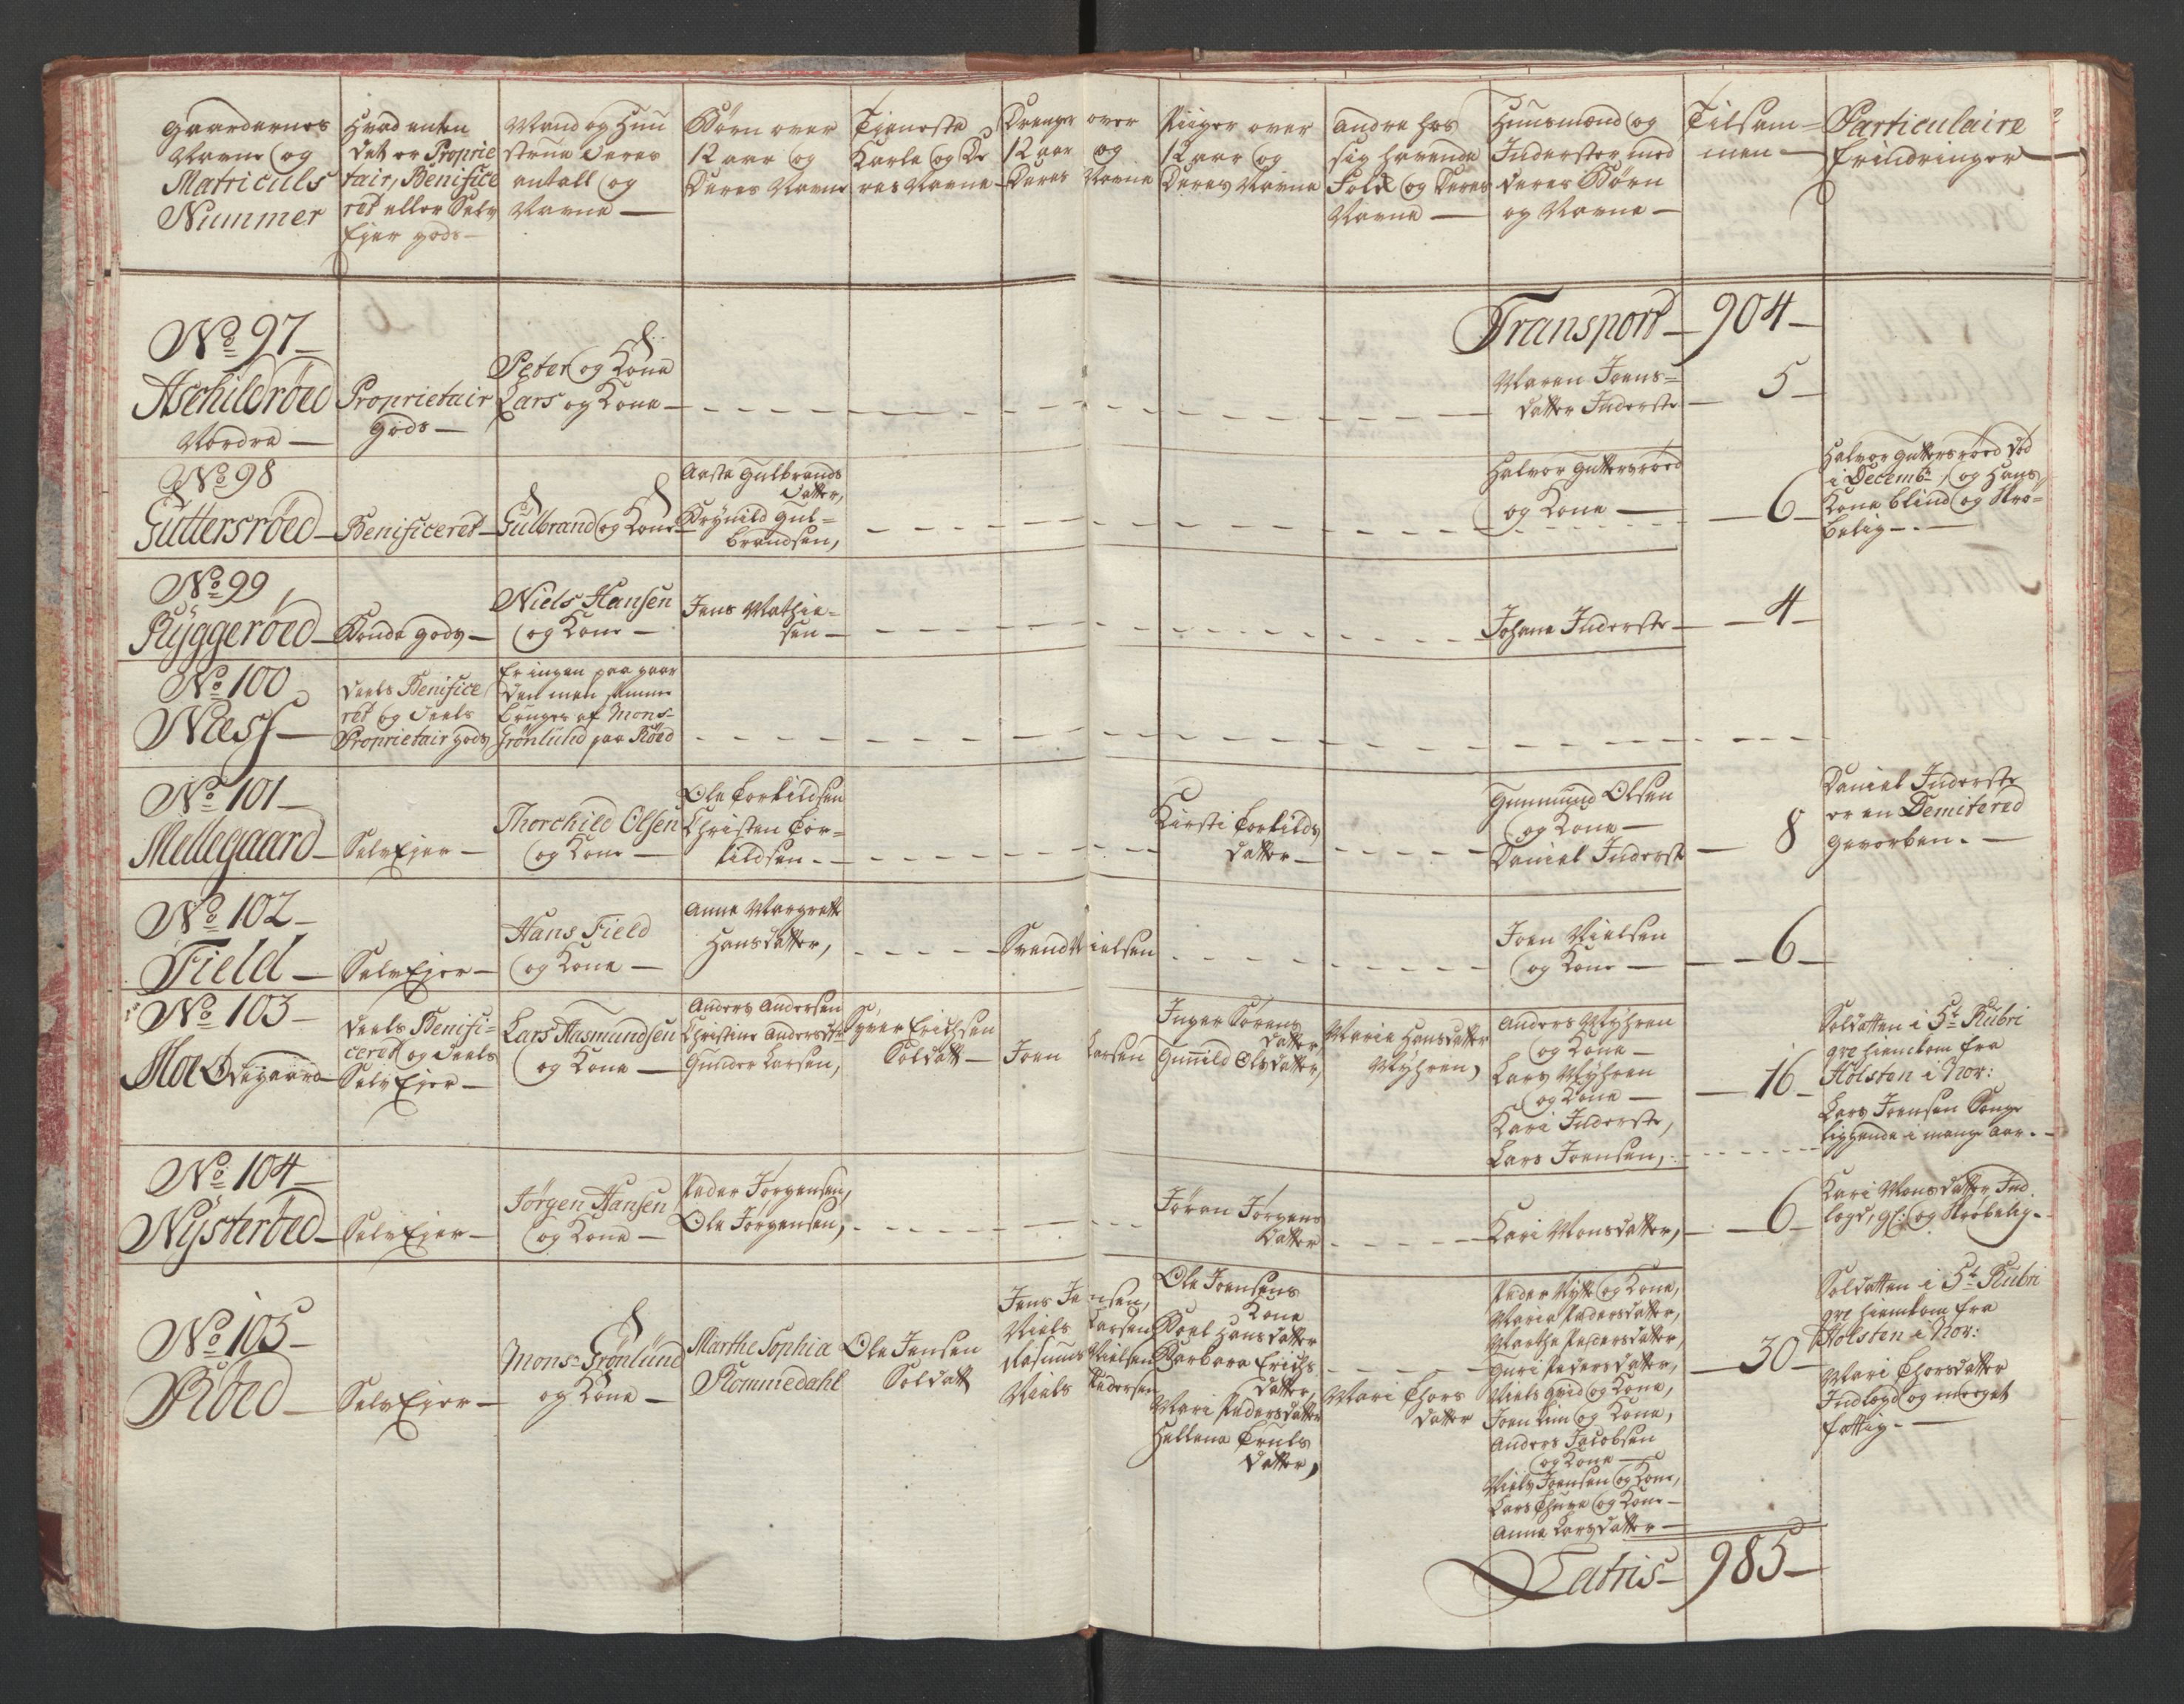 Gaardernes
Navne og
Matriculs
Nummer
Hvad enten
det er Proprie
tair, Benifice
ret eller Selv
Ejer gods
Mand og Huu
struе deres
antall og
Navne
Børn over
12 aar og
Deres Navne
Tieneste
Karle og De
res Navne
Drenge over
12 aar og
Deres Navne
Piiger over
12 aar og
Deres Navne
Andre hos
sig havende
Folk og Deres
Navne
Huusmænd og
Inderster med
deres Børn
og Navne
Tilsam=
men
Particulaire
Erindringer
Transport 904
No 97
Aschildröed
Nordre
Proprietair
Gods
Peter og Kone
Lars og Kone
Maren Joens=
datter Inderste
5
No 98
Guttersröed
Benificeret
Gulbrand og Kone
Aaste Gulbrands
datter,
Brynild Gul=
brandsen,
Halvor Guttersröed
og Kone
6
Halvor Guttersröed död
i Decembr, og Hans
Kone blind og Skrö=
belig
No 99
Ryggeröed
Bonde gods
Niels Hansen
og Kone
Jens Mathie=
sen
Johane Inderste
4
No 100
Næss
Deels Benifice
ret og Deels
Proprietair gods
Er ingen paa gaar
den men samme
bruges af Mons=
Grönlund paa Röed
No 101
Mellegaard
SelvEjer
Thorchild Olsen
og Kone
Ole Torkildsen
Christen Tor=
kildsen
Kirsti Torkilds
datter
Gunmund Olsen
og Kone
Daniel Inderst
8
Daniel Inderste
er en Demitered
Gevorben.
No 102
Field
SelvEjer
Hans Field
og Kone
Anne Margrette
Hansdatter,
Svend Nielsen
Joen Nielsen
og Kone
6
No 103
Moe Ödegaard
Deels Benifi=
ceret og Deels
SelvEjer
Lars Aasmundsen
og Kone
Anders Andersen
Christine Andersdtr
Gunder Larsen,
Syver Erichsen
Soldatt
Joen Larsen
Inger Sörens
datter,
Gunild Olsdatter,
Marie Hansdatter
Myhren,
Anders Myhren
og Kone
Lars Myhren
og Kone
Kari Inderste,
Lars Joensen,
16
Soldatten i 5te Rubri
qve hiemkom fra
Holsten i Nov:
Lars Joensen Senge
liggende i mange Aar.
No 104
Nysteröed
SelvEjer
Jörgen Hansen
og Kone
Peder Jörgensen,
Ole Jörgensen,
Jöran Jörgens
datter
Kari Monsdatter,
6
Kari Monsdatter Ind
logd, gl: og Skröbelig
No 105
Röed
SelvEjer
Mons= Grönlund
og Kone
Marthe Sophia
Plommedahl
Ole Jensen
Soldatt
Jens Jensen,
Niels Larsen
Rasmus Nielsen
Niels Pedersen
Ole Joensens
Kone
Boel Hansdatter
Barbara Erichs
datter,
Mari Pedersdatter
Hellena Truls
datter,
Mari Thors
datter
Peder Nytte og Kone,
Maria Pedersdatter,
Marthe Pedersdatter,
Guri Pedersdatter,
Niels Qvid og Kone,
Joen Lim og Kone,
Anders Jacobsen
og Kone
Niels Joensen og Kone,
Lars Thue og Kone
Anne Larsdatter
30
Soldatten i 5te Rubri
qve hiemkom fra
Holsten i Nov:
Mari Thorsdatter
Indlogd og meeget
fattig
Latris 985